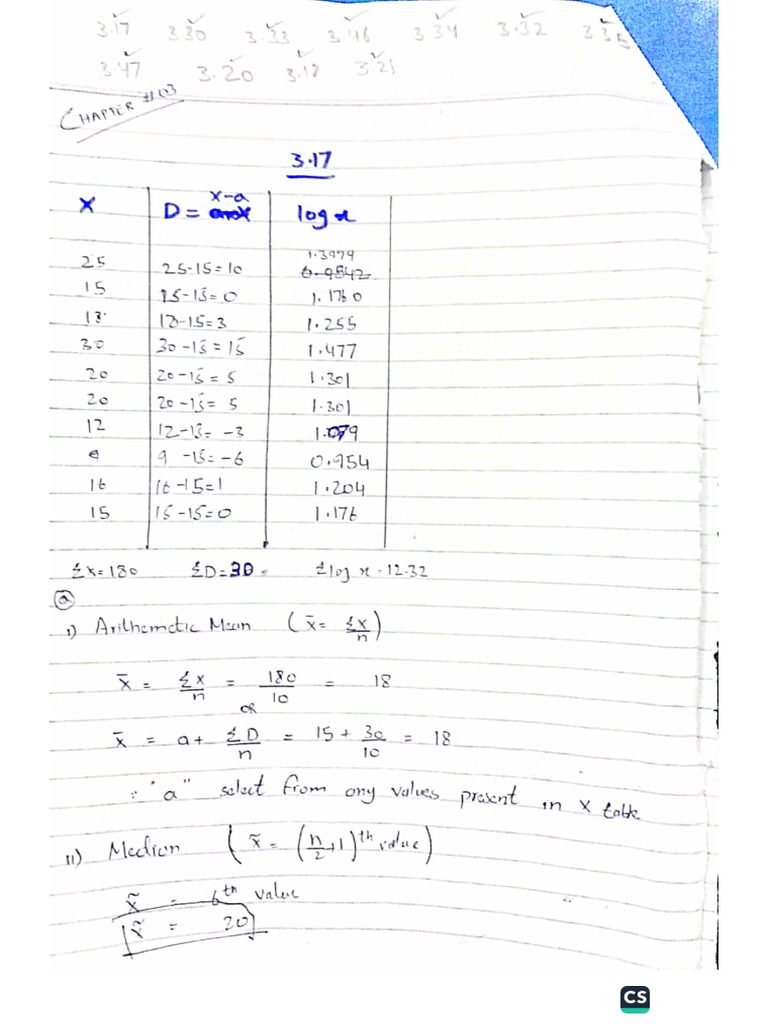 3.17 3.30 3.33 3.46 3.34 3.32 3.35
3.47 3.20 3.18 3.21
CHAPTER #03
3.17
X D = x-a log x
25 25-15=10 1.3979
15 15-15=0 1.1760
18 18-15=3 1.255
30 30-15=15 1.477
20 20-15=5 1.301
20 20-15=5 1.301
12 12-15=-3 1.079
9 9-15=-6 0.954
16 16-15=1 1.204
15 15-15=0 1.176
Σx=180 ΣD=30 Σlog x=12.32
(a)
i) Arithemetic Mean (x̄ = Σx/n)
x̄ = Σx/n = 180/10 = 18
OR
x̄ = a + ΣD/n = 15 + 30/10 = 18
∴ "a" select from any values present in x table
ii) Median (x̃ = (n/2+1)th value)
x̃ = 6th value
x̃ = 20
CS